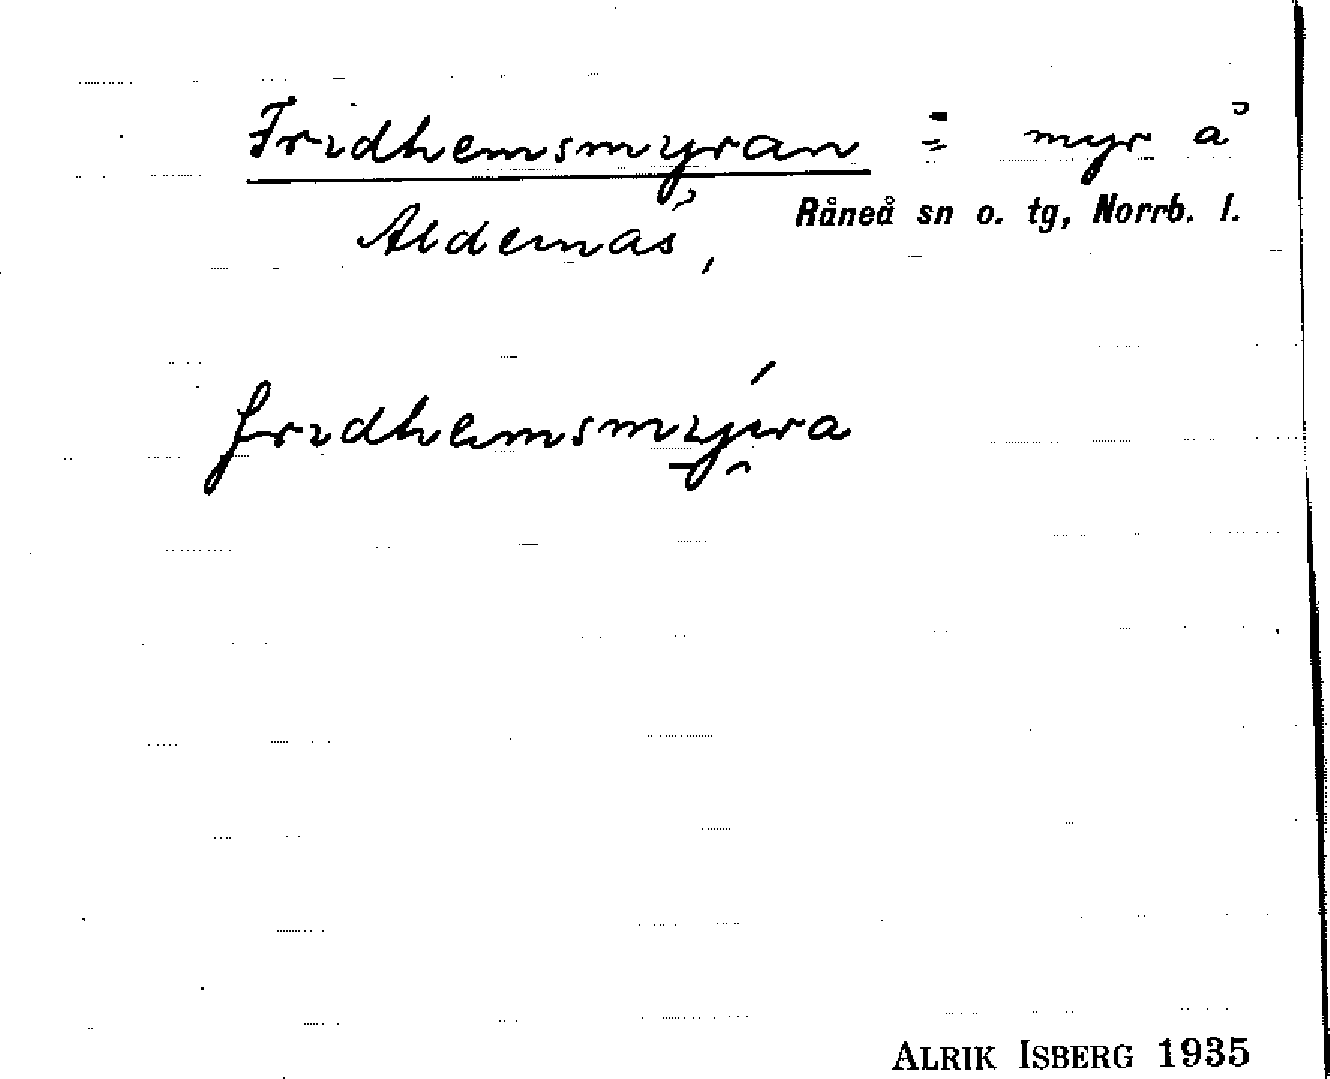 Fridhemsmyran = myr å
Aldernäs, Råneå sn o. tg, Norrb. l.
ALRIK ISBERG 1935